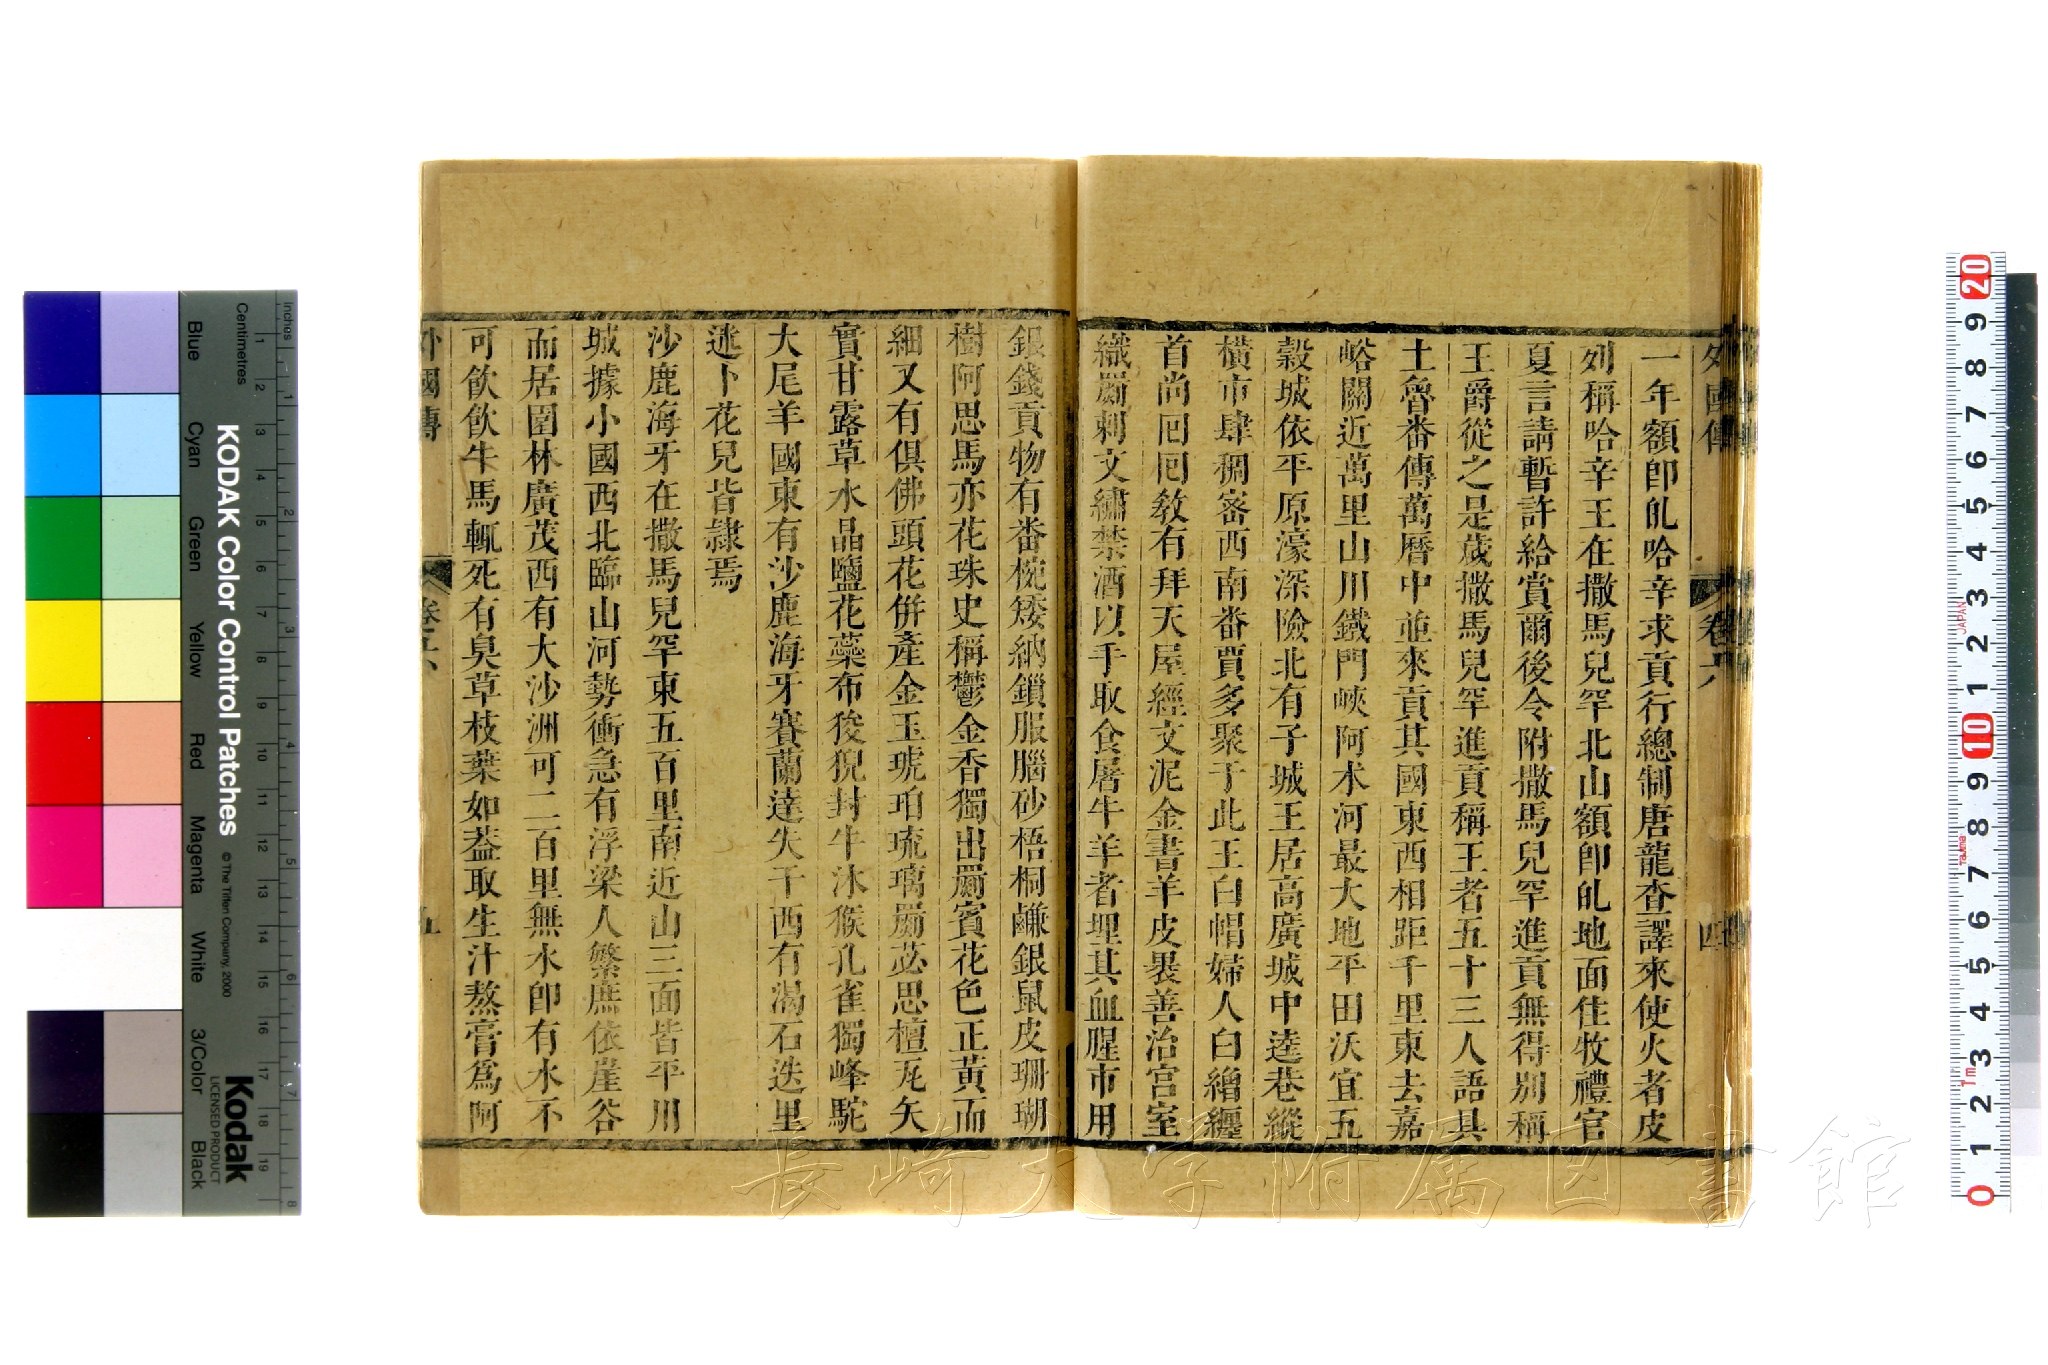 外國傳
卷六
四
一年額卽癿哈辛求貢行總制唐龍查譯來使火者皮
列稱哈辛王在撒馬兒罕北山額卽癿地面住牧禮官
夏言請暫許給賞爾後令附撒馬兒罕進貢無得別稱
王爵從之是歲撒馬兒罕進貢稱王者五十三人語具
土魯畨傳萬曆中並來貢其國東西相距千里東去嘉
峪關近萬里山川鐵門峽阿朮河最大地平田沃宜五
穀城依平原濠深險北有子城王居高廣城中逵巷縱
橫市肆稠密西南畨賈多聚于此王白帽婦人白繒纒
首尚囘囘敎有拜天屋經文泥金書羊皮裹善治宮室
織罽刺文繡禁酒以手取食屠牛羊者埋其血腥市用
銀錢貢物有畨椀矮納鎖服腦砂梧桐鹻銀鼠皮珊瑚
樹阿思馬亦花珠史稱鬱金香獨出罽賓花色正黃而
細又有俱佛頭花併產金玉琥珀琉璃罽苾思檀瓦矢
實甘露草水晶鹽花蘂布狻猊封牛沐猴孔雀獨峰駝
大尾羊國東有沙鹿海牙賽蘭達失干西有渴石迭里
迷卜花兒皆隸焉
沙鹿海牙在撒馬兒罕東五百里南近山三面皆平川
城據小國西北臨山河勢衝急有浮梁人繁庶依崖谷
而居園林廣茂西有大沙洲可二百里無水卽有水不
可飮飮牛馬輒死有臭草枝葉如葢取生汁熬膏爲阿
外國傳
卷六
五
KODAK Color Control Patches
© The Tiffen Company, 2000
Kodak
LICENSED PRODUCT
Inches
Centimetres
Blue
Cyan
Green
Yellow
Red
Magenta
White
3/Color
Black
JAPAN
長崎大学附属図書館